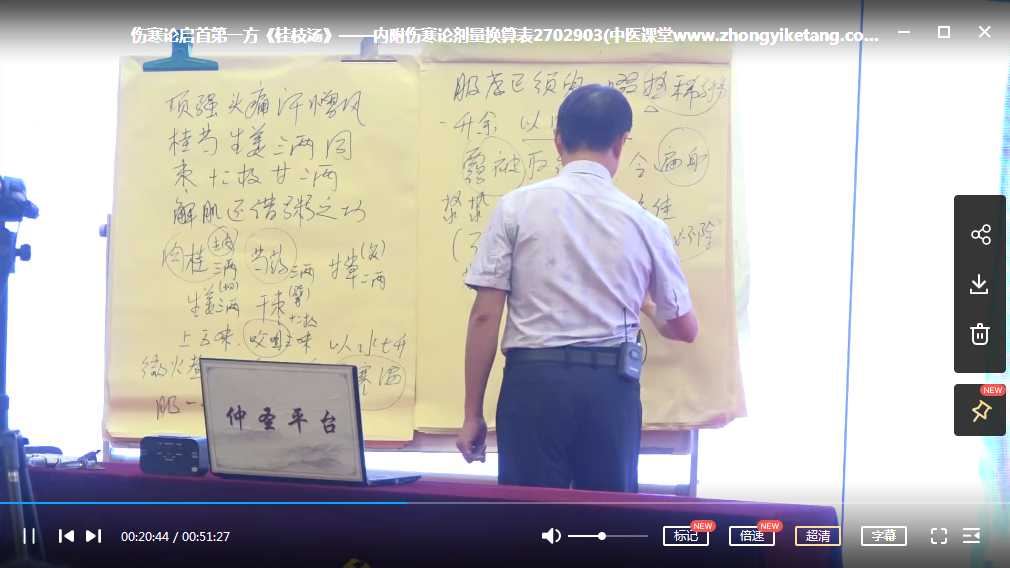 伤寒论启首第一方《桂枝汤》——内附伤寒论剂量换算表2702903(中医课堂www.zhongyiketang.co...
项强头痛汗憎风
桂芍生姜三两同
枣十二枚甘二两
解肌还借粥之功
肉桂 去皮 三两 芍药 三两 甘草(炙)二两
生姜(切)三两 干枣(擘)十二枚
上五味 以水七升
微火煮 寒温
服一
服 已须臾 啜 热稀粥
一升余 以
覆被取 令 遍身
漐漐 佳
不除
仲圣平台
NEW
00:20:44 / 00:51:27
标记 NEW
倍速 NEW
超清
字幕